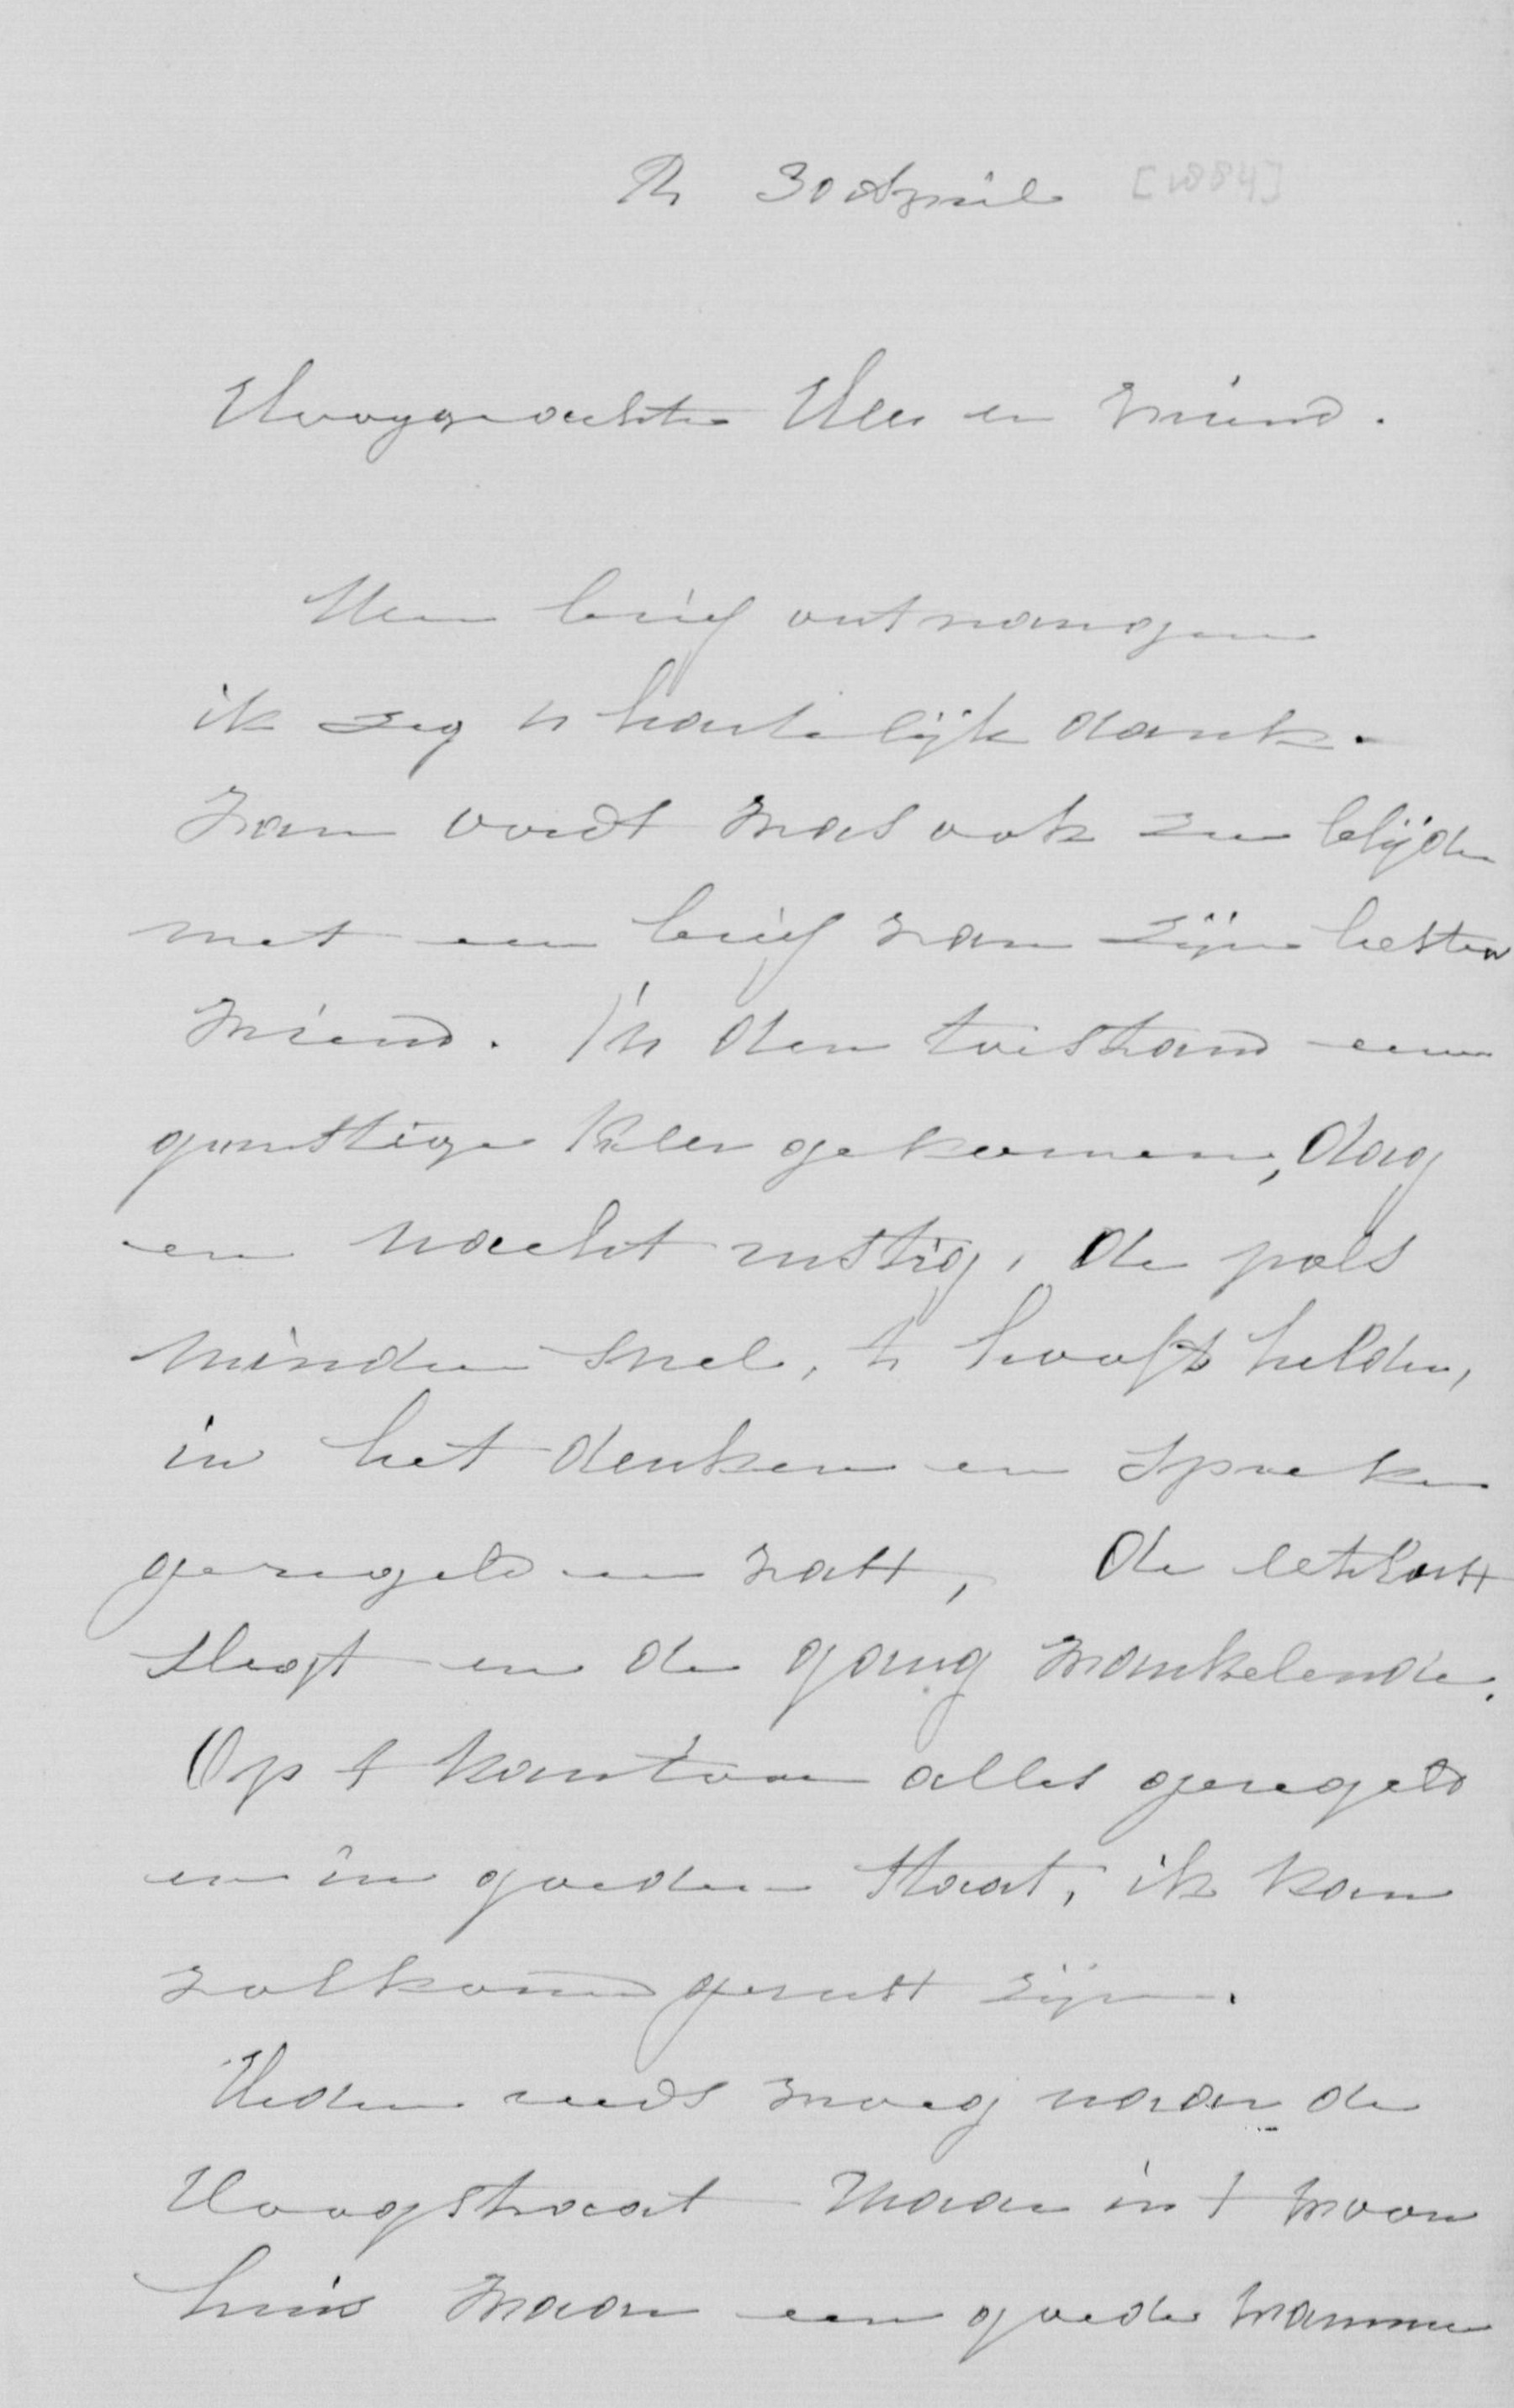 R 30 April [1884]
Hooggeachte Heer en vriend.
Uwen brief ontvangen
ik zeg U hartelijk dank.
Van Voort was ook zeer blijde
met een brief van zijn besten
vriend. In den toestand een
gunstige keer gekomen, dag
en nacht rustig, de pols
minder snel, 't hooft helder,
in het denken en spreken
geregeld en vast, de eetlust
slegt en de gang wankelende.
Op t kantoor alles geregeld
en in goeden staat, ik kan
volkomen gerust zijn.
Heden reeds vroeg naar de
Hoogstraat maar in t woon
huis waar een goede warme